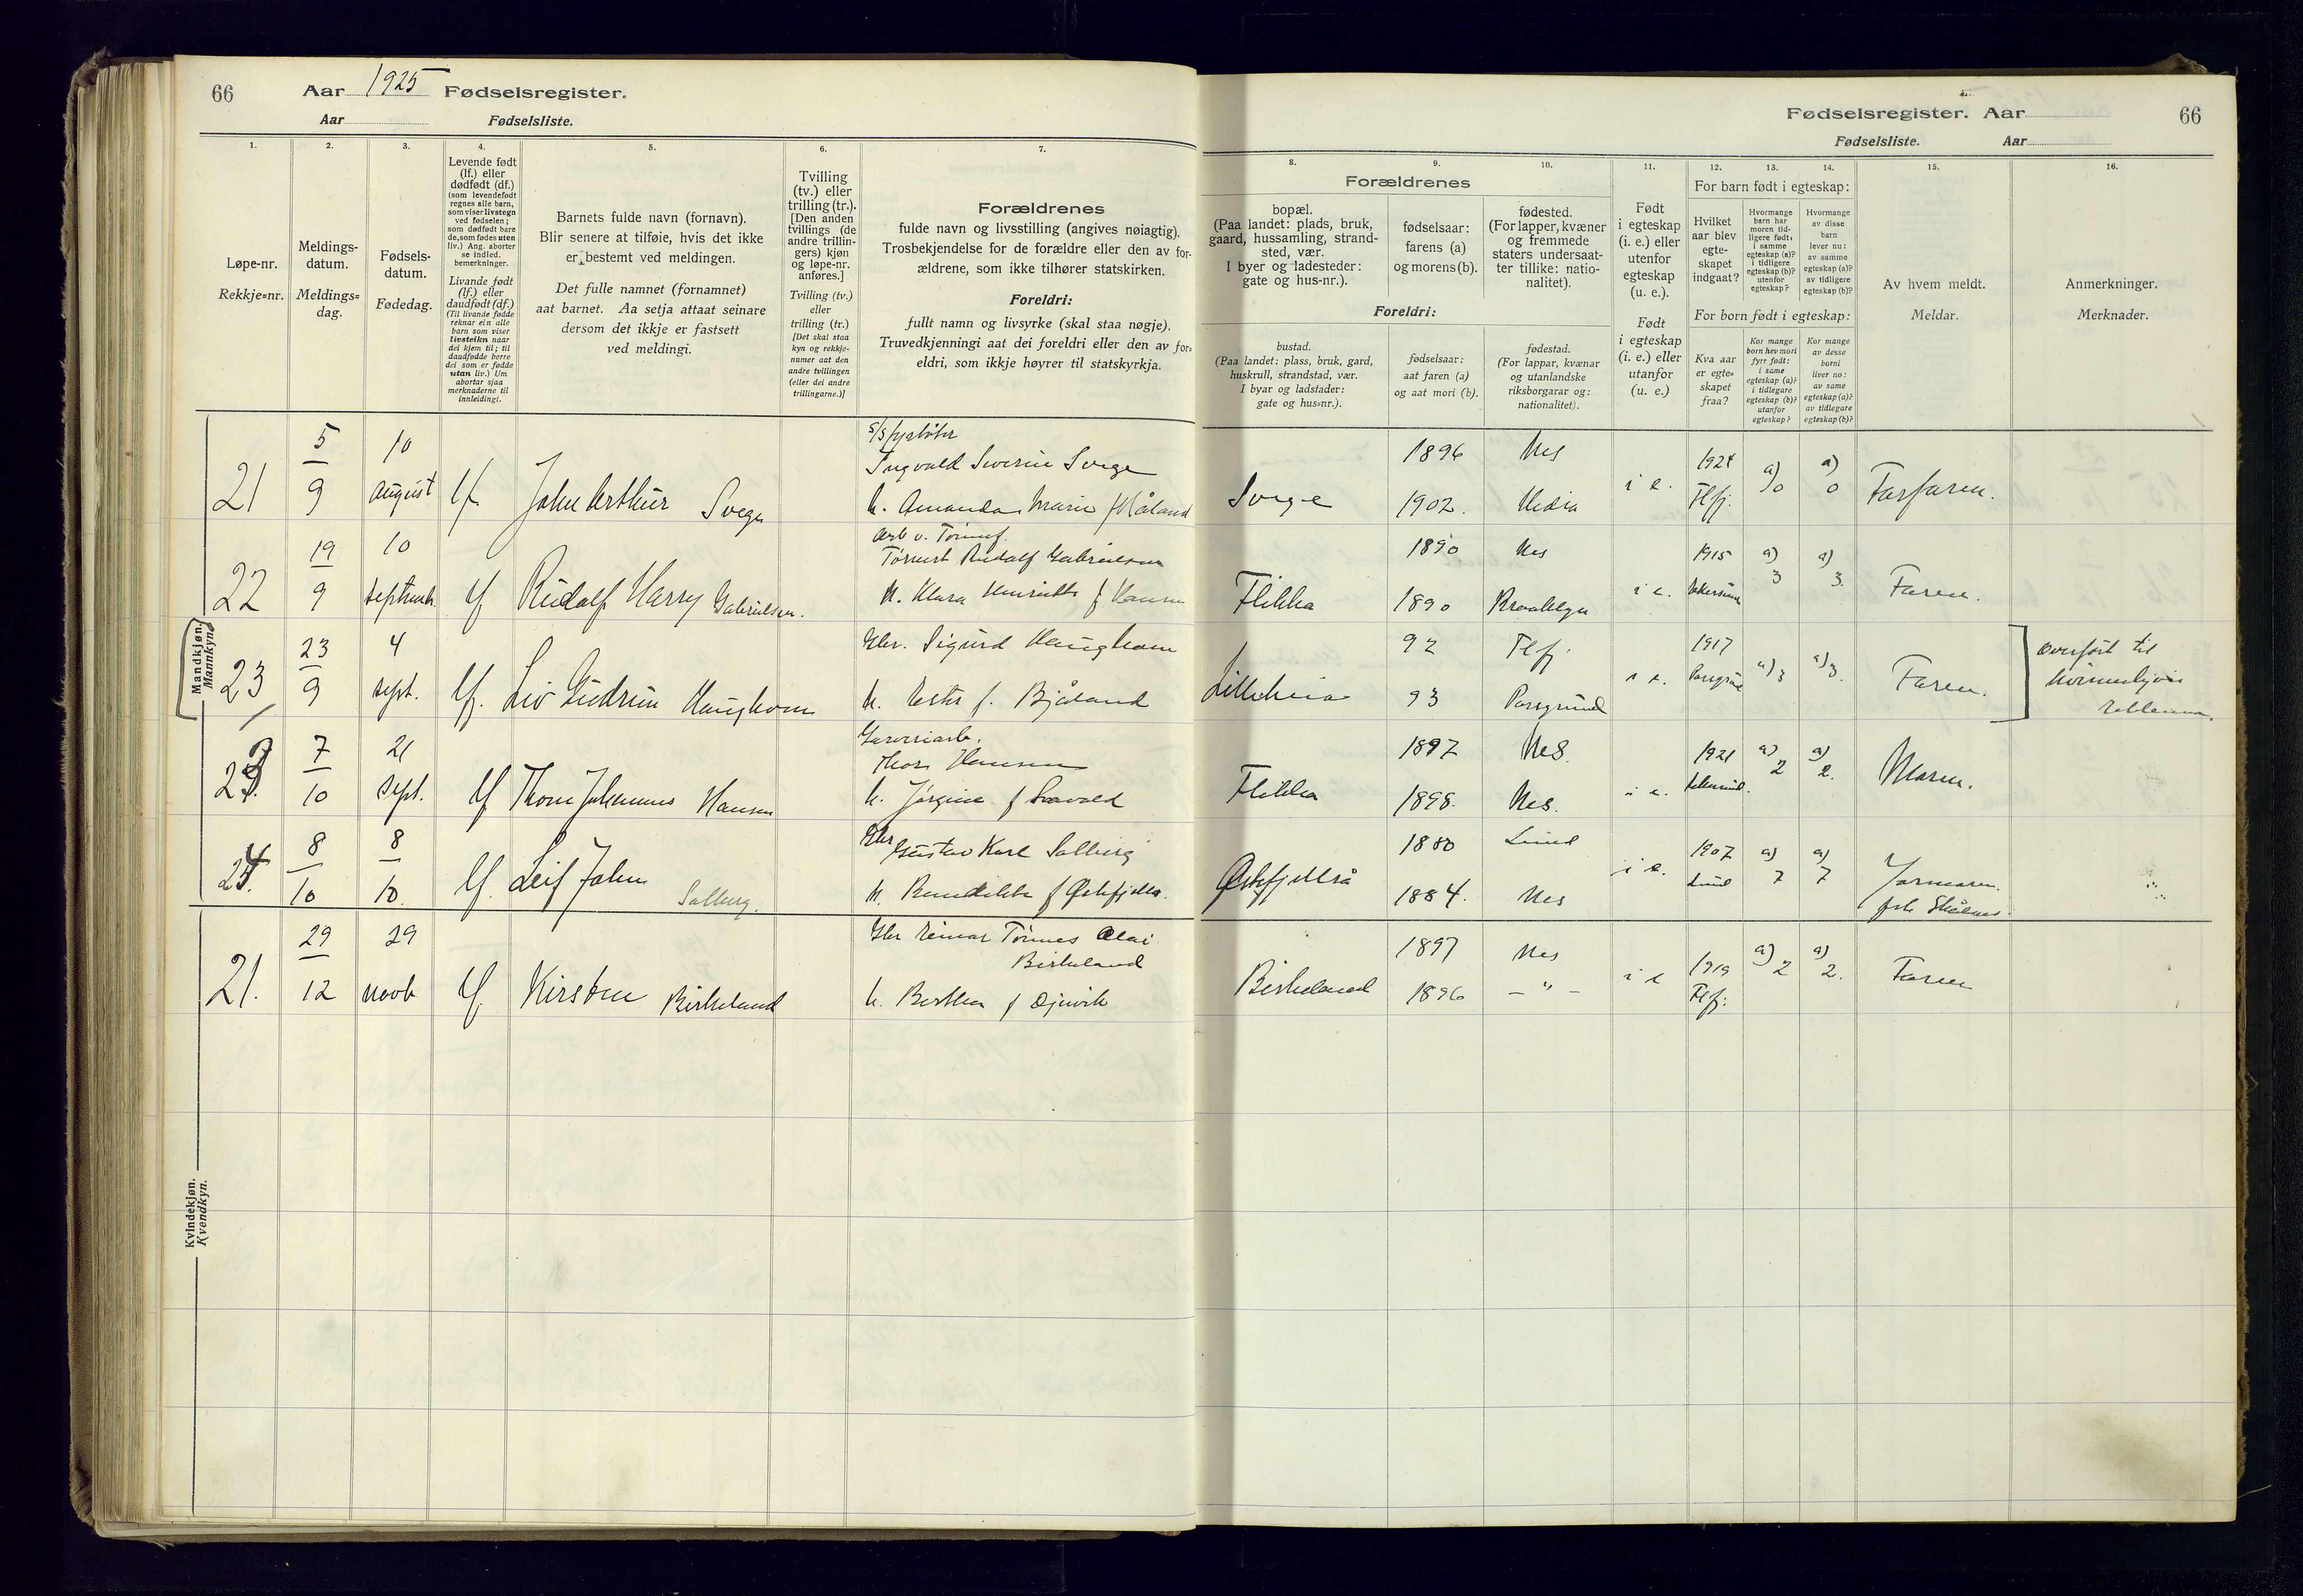 66
Aar 1925 Fødselsregister.
Aar Fødselsliste.
1.
2.
3.
4.
5.
6.
7.
Løpe-nr.
Rekkje=nr.
Meldings-
datum.
Meldings=
dag.
Fødsels-
datum.
Fødedag.
Levende født
(lf.) eller
dødfødt (df.)
(som levendefødt
regnes alle barn,
som viser livstegn
ved fødselen;
som dødfødt bare
de, som fødes uten
liv.) Ang. aborter
se indled.
bemerkninger.
Livande født
(lf.) eller
daudfødt (df.)
(Til livande fødde
reknar ein alle
barn som viser
livsteikn naar
dei kjem til; til
daudfødde berre
dei som er fødde
utan liv.) Um
abortar sjaa
merknaderne til
innleidingi.
Barnets fulde navn (fornavn).
Blir senere at tilføie, hvis det ikke
er bestemt ved meldingen.
Det fulle namnet (fornamnet)
aat barnet. Aa setja attaat seinare
dersom det ikkje er fastsett
ved meldingi.
Tvilling
(tv.) eller
trilling (tr.).
[Den anden
tvillings (de
andre trillin-
gers) kjøn
og løpe-nr.
anføres.]
Tvilling (tv.)
eller
trilling (tr.)
[Det skal staa
kyn og rekkje-
numer aat den
andre tvillingen
(eller dei andre
trillingarne.)]
Forældrenes
fulde navn og livsstilling (angives nøiagtig).
Trosbekjendelse for de forældre eller den av for-
ældrene, som ikke tilhører statskirken.
Foreldri:
fullt namn og livsyrke (skal staa nøgje).
Truvedkjenningi aat dei foreldri eller den av for=
eldri, som ikkje høyrer til statskyrkja.
Mandkjøn.
Mannkyn.
21
5
9
10
august
lf
John Arthur Svege
Ingvald Severin Svege
h. Amanda Marie f Håland
22
19
9
10
septemb.
lf
Rudolf Harry Gabrielsen.
arb v.
Rudolf Gabrielsen
h. Klara Henriette f Hansen
23
23
9
4
sept.
lf.
Liv Gudrun Haughom
Gbr. Sigurd Haughom
h. Ester f. Bjåland
23.
7
10
21
sept.
lf
Thom Johannes Hansen
Garveriarb.
Thors Hansen
h. Jørgine f
24.
8
10
8
10.
lf.
Leif John
Solberg.
Gbr
Gustav Karl Solberg
h. Bendikte f
21.
29
12
29
novb
lf
Kirsten Birkeland
Gbr Reinar Tønnes Olai
Birkeland
h. Berthea f Øjnvik
Kvindekjøn.
Kvendkyn.
Fødselsregister. Aar
66
Fødselsliste. Aar
8.
9.
10.
11.
12.
13.
14.
15.
16.
Forældrenes
bopæl.
(Paa landet: plads, bruk,
gaard, hussamling, strand-
sted, vær.
I byer og ladesteder:
gate og hus-nr.).
fødselsaar:
farens (a)
og morens (b).
fødested.
(For lapper, kvæner
og fremmede
staters undersaat-
ter tillike: natio-
nalitet).
Foreldri:
bustad.
(Paa landet: plass, bruk, gard,
huskrull, strandstad, vær.
I byar og ladstader:
gate og hus=nr.).
fødselsaar:
aat faren (a)
og aat mori (b).
fødestad.
(For lappar, kvænar
og utanlandske
riksborgarar og:
nationalitet).
Født
i egteskap
(i. e.) eller
utenfor
egteskap
(u. e.).
Født
i egteskap
(i. e.) eller
utanfor
(u. e.)
For barn født i egteskap:
Hvilket
aar blev
egte-
skapet
indgaat?
Hvormange
barn har
moren tid-
ligere født:
i samme
egteskap (a)?
i tidligere
egteskap (b)?
utenfor
egteskap?
Hvormange
av disse
barn
lever nu:
av samme
egteskap (a)?
av tidligere
egteskap (b)?
For born født i egteskap:
Kva aar
er egte=
skapet
fraa?
Kor mange
born hev mori
fyrr født:
i same
egteskap (a)?
i tidlegare
egteskap (b)?
utanfor
egteskap?
Kor mange
av desse
borni
liver no:
av same
egteskap (a)?
av tidlegare
egteskap (b)?
Av hvem meldt.
Meldar.
Anmerkninger.
Merknader.
Svege
1896
1902.
Nes
Hidra
i e.
1924
Flfj.
a)
0
a)
0
Farfaren.
Flikka
1890
1890
Nes
i e.
1915
a)
3
a)
3.
Faren.
Lilleheia
92
93
Flfj.
Porsgrund
i e.
1917
Porsgrund
a) 3
a) 3.
Faren.
Overført til
kvinnekjøn
Flikka
1897
1898.
Nes.
Nes.
i e.
1921
a)
2
a)
2.
Moren.
1880
1884.
Lund
Nes
i e.
1907
Lund
a)
7
a)
7
Jormoren.
Birkeland
1897
1896
Nes
– " –
i e
1919
Flfj.
a)
2
a)
2.
Faren